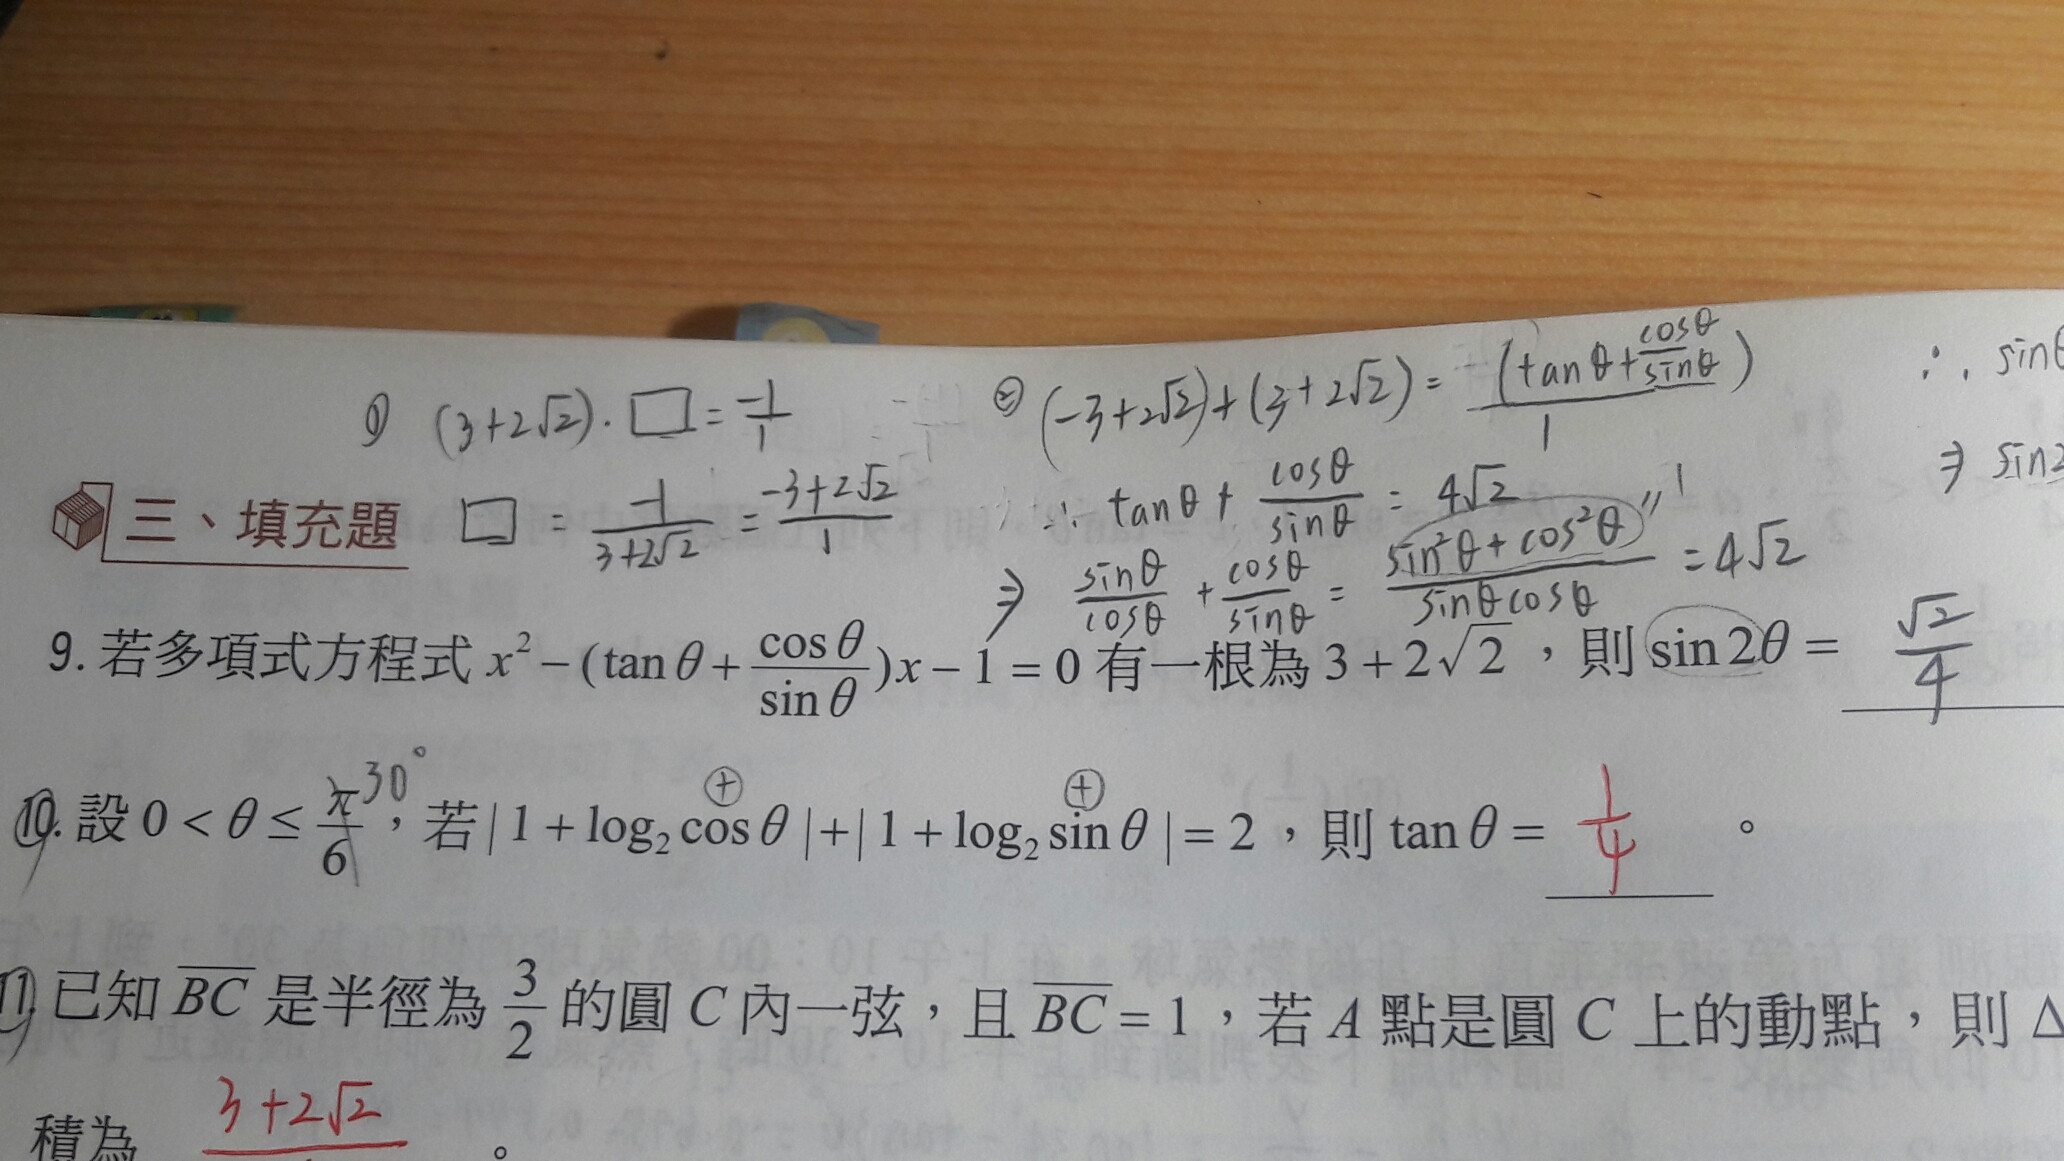 ① (3+2√2)·□ = -1/1
□ = -1/(3+2√2) = (-3+2√2)/1
② (-3+2√2)+(3+2√2) = (tanθ+cosθ/sinθ)/1
∴ tanθ + cosθ/sinθ = 4√2
⇒ sinθ/cosθ + cosθ/sinθ = (sin²θ+cos²θ)/(sinθcosθ) = 4√2
"1
∴ sinθ
⇒ sin2
三、填充題
9. 若多項式方程式 x² − (tan θ + cos θ/sin θ)x − 1 = 0 有一根為 3 + 2√2，則 sin 2θ = √2/4
10. 設 0 < θ ≤ π/6，若 | 1 + log₂ cos θ | + | 1 + log₂ sin θ | = 2，則 tan θ = 1/4 。
30°
⊕ ⊕
11. 已知 BC 是半徑為 3/2 的圓 C 內一弦，且 BC = 1，若 A 點是圓 C 上的動點，則 Δ
積為 3+2√2 。